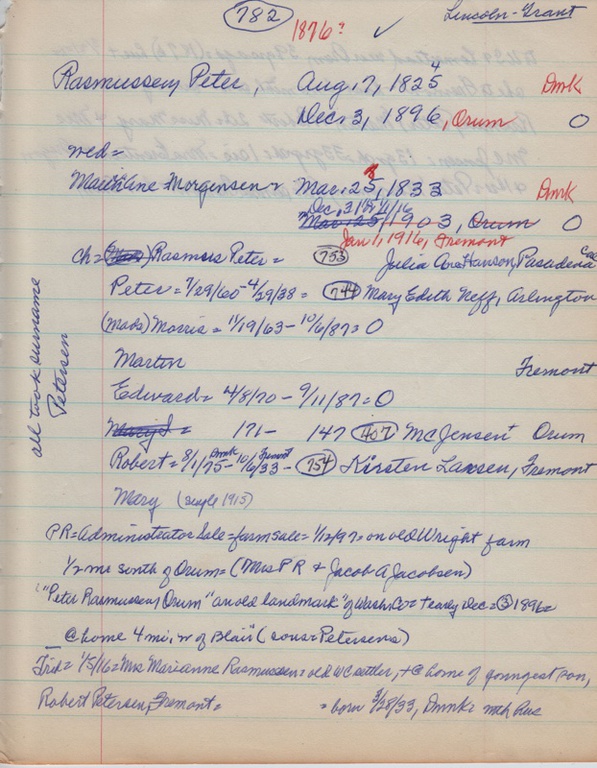 782 1876? ✓ Lincoln-Grant
Rasmussen, Peter, Aug. 7, 1825 4 Dmk
Dec. 3, 1896, Orum O
wed=
Morgensen Mar. 25, 1833 8 Dmk
Dec, 31
Mar. 25, 1903, Orum O
Jan 1, 1916, Fremont
ch= Rasmus Peter= 753 Julia Hanson, Pasadena Cal
Peter= 7/29/60-4/29/38= 744 Mary Edith Neff, Arlington
(Mads) Morris= 11/19/63-10/6/87=O
Martin Fremont
Edward= 4/8/70-9/11/87=O
Mary = 171- 147 407 McJensen Orum
Robert= 8/1/75 Dmk-10/6/33 Fremont- 754 Kirsten Larsen, Fremont
Mary (single 1915)
all took surname
Petersen
PR=Administrator Sale=farm sale=1/12/97=on old Wright farm
1/2 mi south of Orum= (Mrs PR + Jacob A Jacobsen)
"Peter Rasmussen, Orum "an old landmark" of Wash. Co= + early Dec= 3 1896=
@ home 4 mi, w of Blair (sons=Petersens)
1/5/16=Mrs Marianne Rasmussen= old WC settler, + @ home of youngest son,
Robert Petersen, Fremont= = born 3/28/33, Dmk=